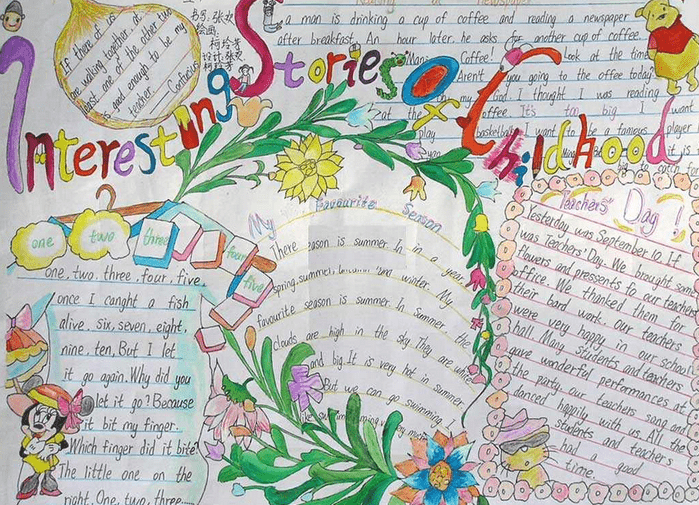 Interesting Stories Of Childhood
If there at
are walking together, at
east one of the other two
is good enough to be my
teacher. Confucius
Reading a newspaper
a man is drinking a cup of coffee and reading a newspaper
after breakfast. An hour later, he asks for another cup of coffee.
Coffee! Look at the time
Aren't you going to the coffee today
God. I thought I was reading
at the
It's too big I want
play basketball I want to be a famous player
one two three four five
one, two, three, four, five,
once I canght a fish
alive, six, seven, eight,
nine, ten, But I let
it go again. Why did you
let it go? Because
it bit my finger.
Which finger did it bite
The little one on the
right. One, two, three......
My Favourite Season
There season is summer. In in a year,
spring, summer, and winter. My
favourite season is summer. In summer, the
clouds are high in the sky. They are white
and big. It is very hot in summer.
But we can go swimming. I
like swimming very much
Teachers' Day!
Yesterday was September 10. If
was Teachers' Day. We brought some
flowers and pressents fo our teachers
office. We thanked them for
their bard work. Our teachers
were very happy in our school
hall. Many students and teachers
gave wonderful performances at
the party. our teachers song and
danced happily with us. All the
students and teachers
had a good
time.